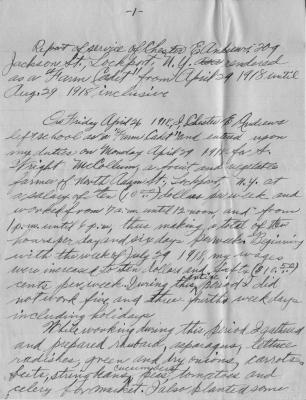 -1-
Report of service of Chester E. Andrews 209
Jackson St., Lockport, N.Y. rendered
as a "Farm Cadet" from April 29 1918 until
Aug. 29 1918, inclusive
On Friday April 26 1918, I Chester E. Andrews
left school as a "Farm Cadet" and entered upon
my duties on Monday April 29 1918 for A.
Wright McCollum, a fruit and vegetable
farmer of North Adam St., Lockport, N.Y. at
a salary of ten (10.00) dollars per week and
worked from 7 a.m. until 12 noon and from
1 p.m. until 6 p.m. thus making a total of ten
hours per day and six days per week. Beginning
with the week of July 29 1918, my wages
were increased to ten dollars and fifty ($10.50)
cents per week. During this period I did
not work five and three fourths week days
including holidays.
While working during this period I gathered
and prepared rhubarb, asparagus, lettuce
radishes, green and dry onions, carrots,
cucumbers
beets, string beans, peas, tomatoes and
celery for market. I also planted some